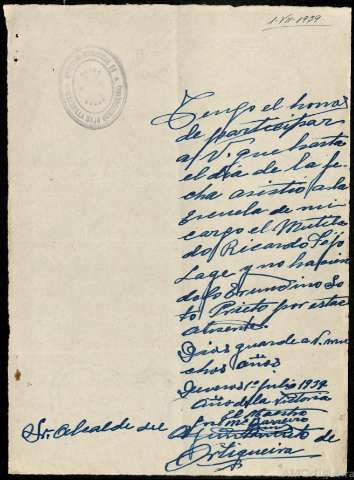 1-VII-1939
Tengo el honor
de participar
a V. que hasta
el dia de la fe
cha asistió a la
Escuela de mi
cargo el Mutila
do Ricardo Feijo
Lage y no hacien
dolo Erundino So
to Prieto por estar
ausente.
Dios guarde a V. mu
chos años
Devesos 1º Julio 1939
Año de la Victoria
El Maestro
José Mª Barreiro
Sr. Alcalde del Ayuntamiento de
Ortigueira